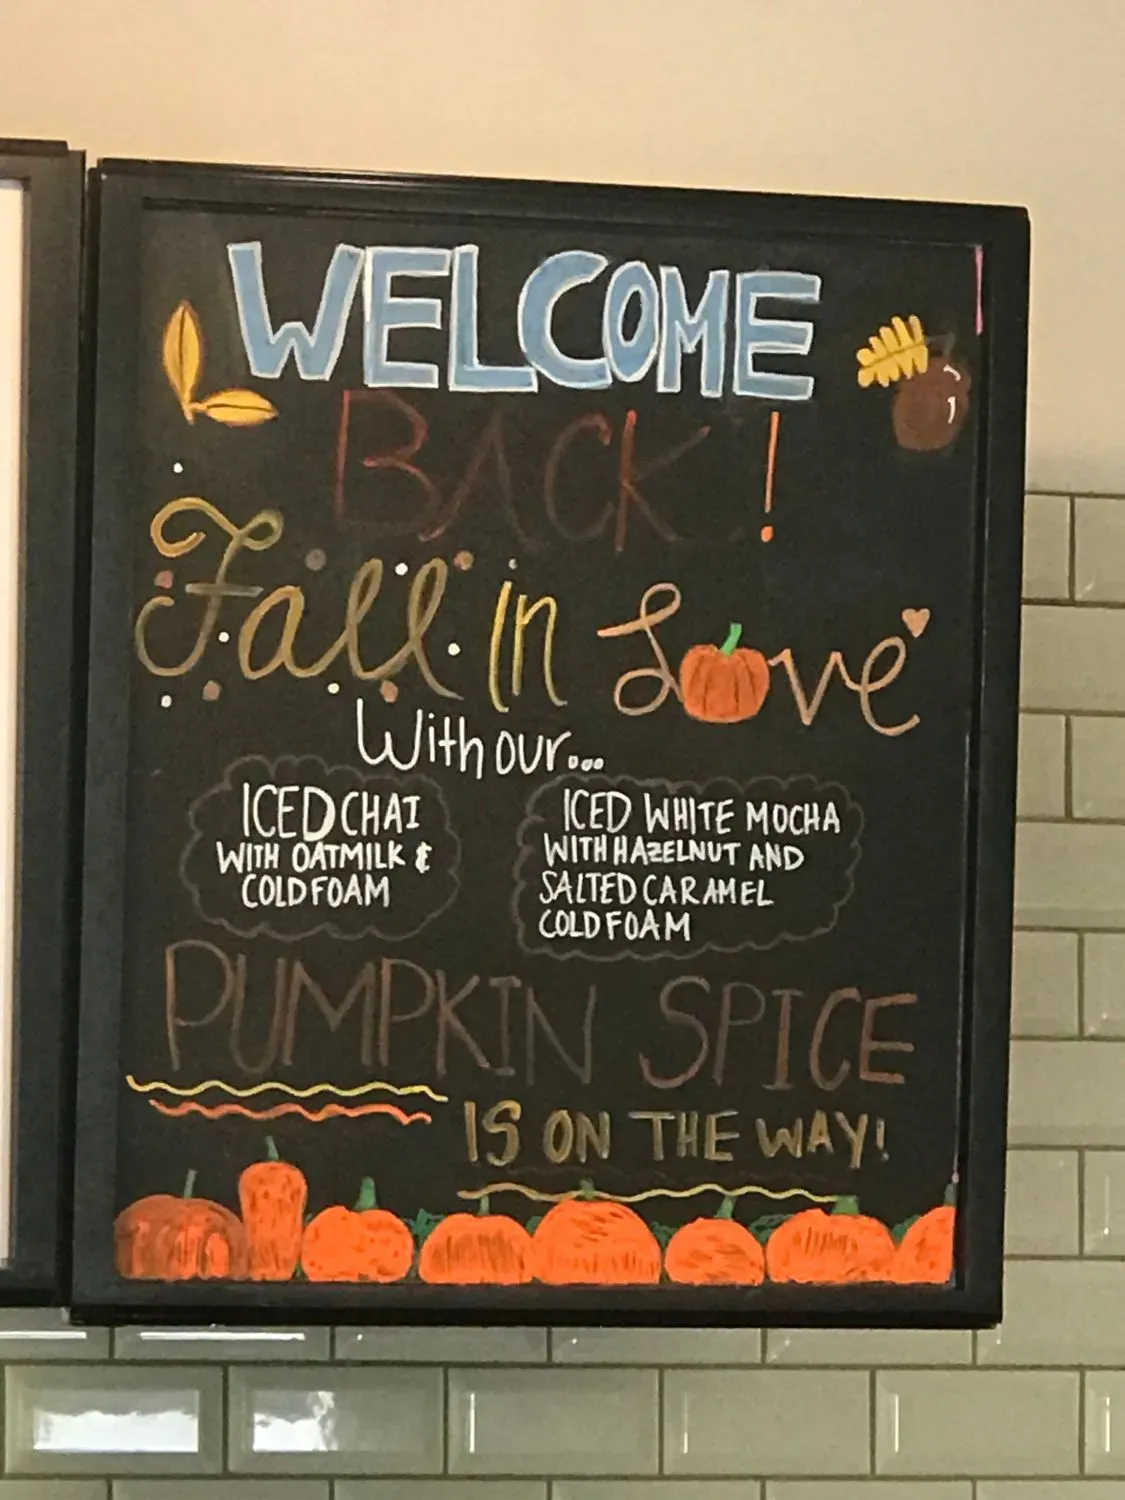 WELCOME
BACK!
Fall in Love
With our...
ICED CHAI
WITH OATMILK &
COLD FOAM
ICED WHITE MOCHA
WITH HAZELNUT AND
SALTED CARAMEL
COLD FOAM
PUMPKIN SPICE
IS ON THE WAY!